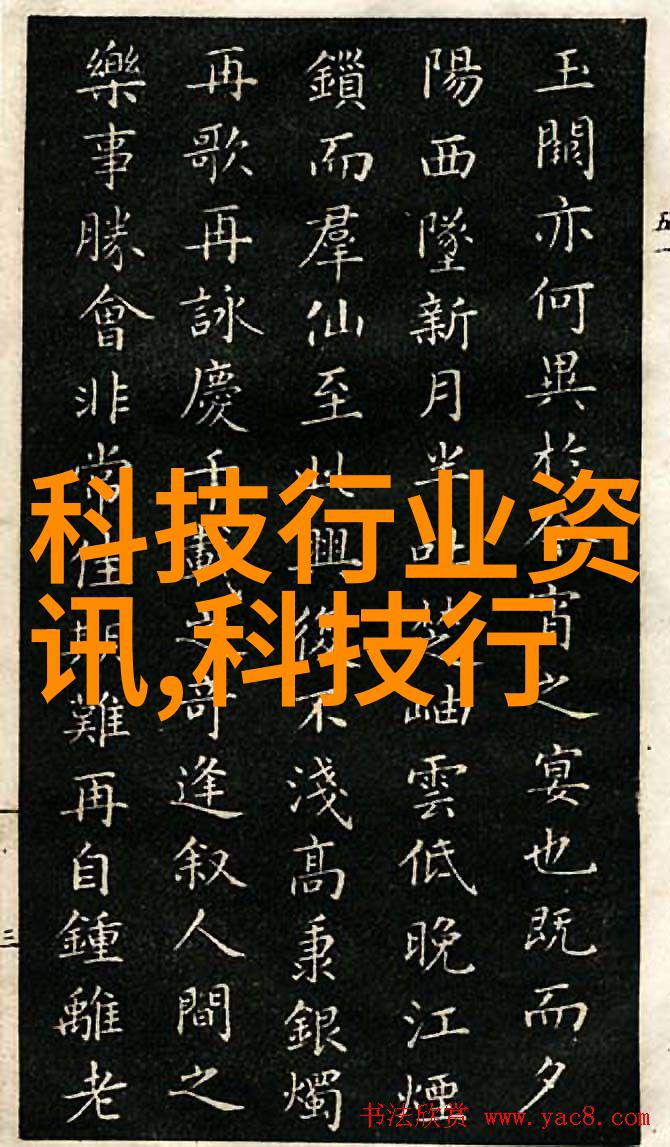 玉闕亦何異於今宵之宴也既而夕
陽西墜新月半吐芝岫雲低晚江煙
鎖而羣仙至此興復不淺高秉銀燭
再歌再詠慶千載之奇逢叙人間之
樂事勝會非常佳期難再自鍾離老
科技行业资
讯,科技行
五
三
书法欣赏 www.yac8.com